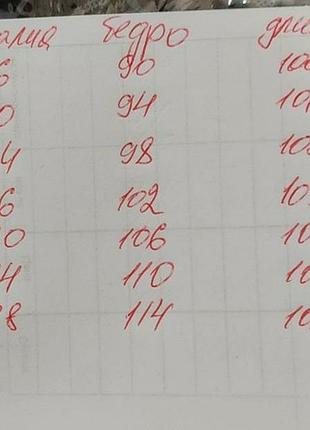 алия бедро дли
6 90 100
0 94 10
4 98 10
6 102 10
0 106 10
4 110 10
8 114 10